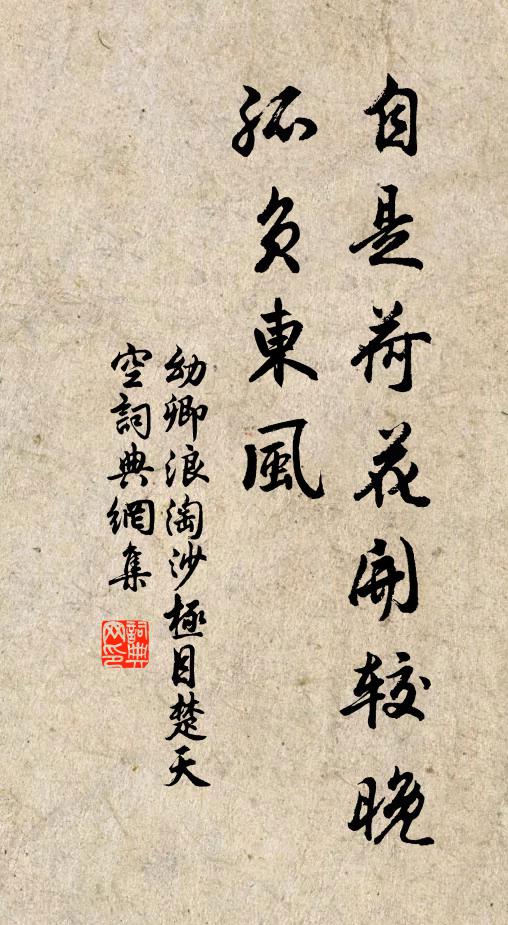 自是荷花開較晚
孤負東風
幼卿浪淘沙極目楚天
空詞典網集
詞典
网印